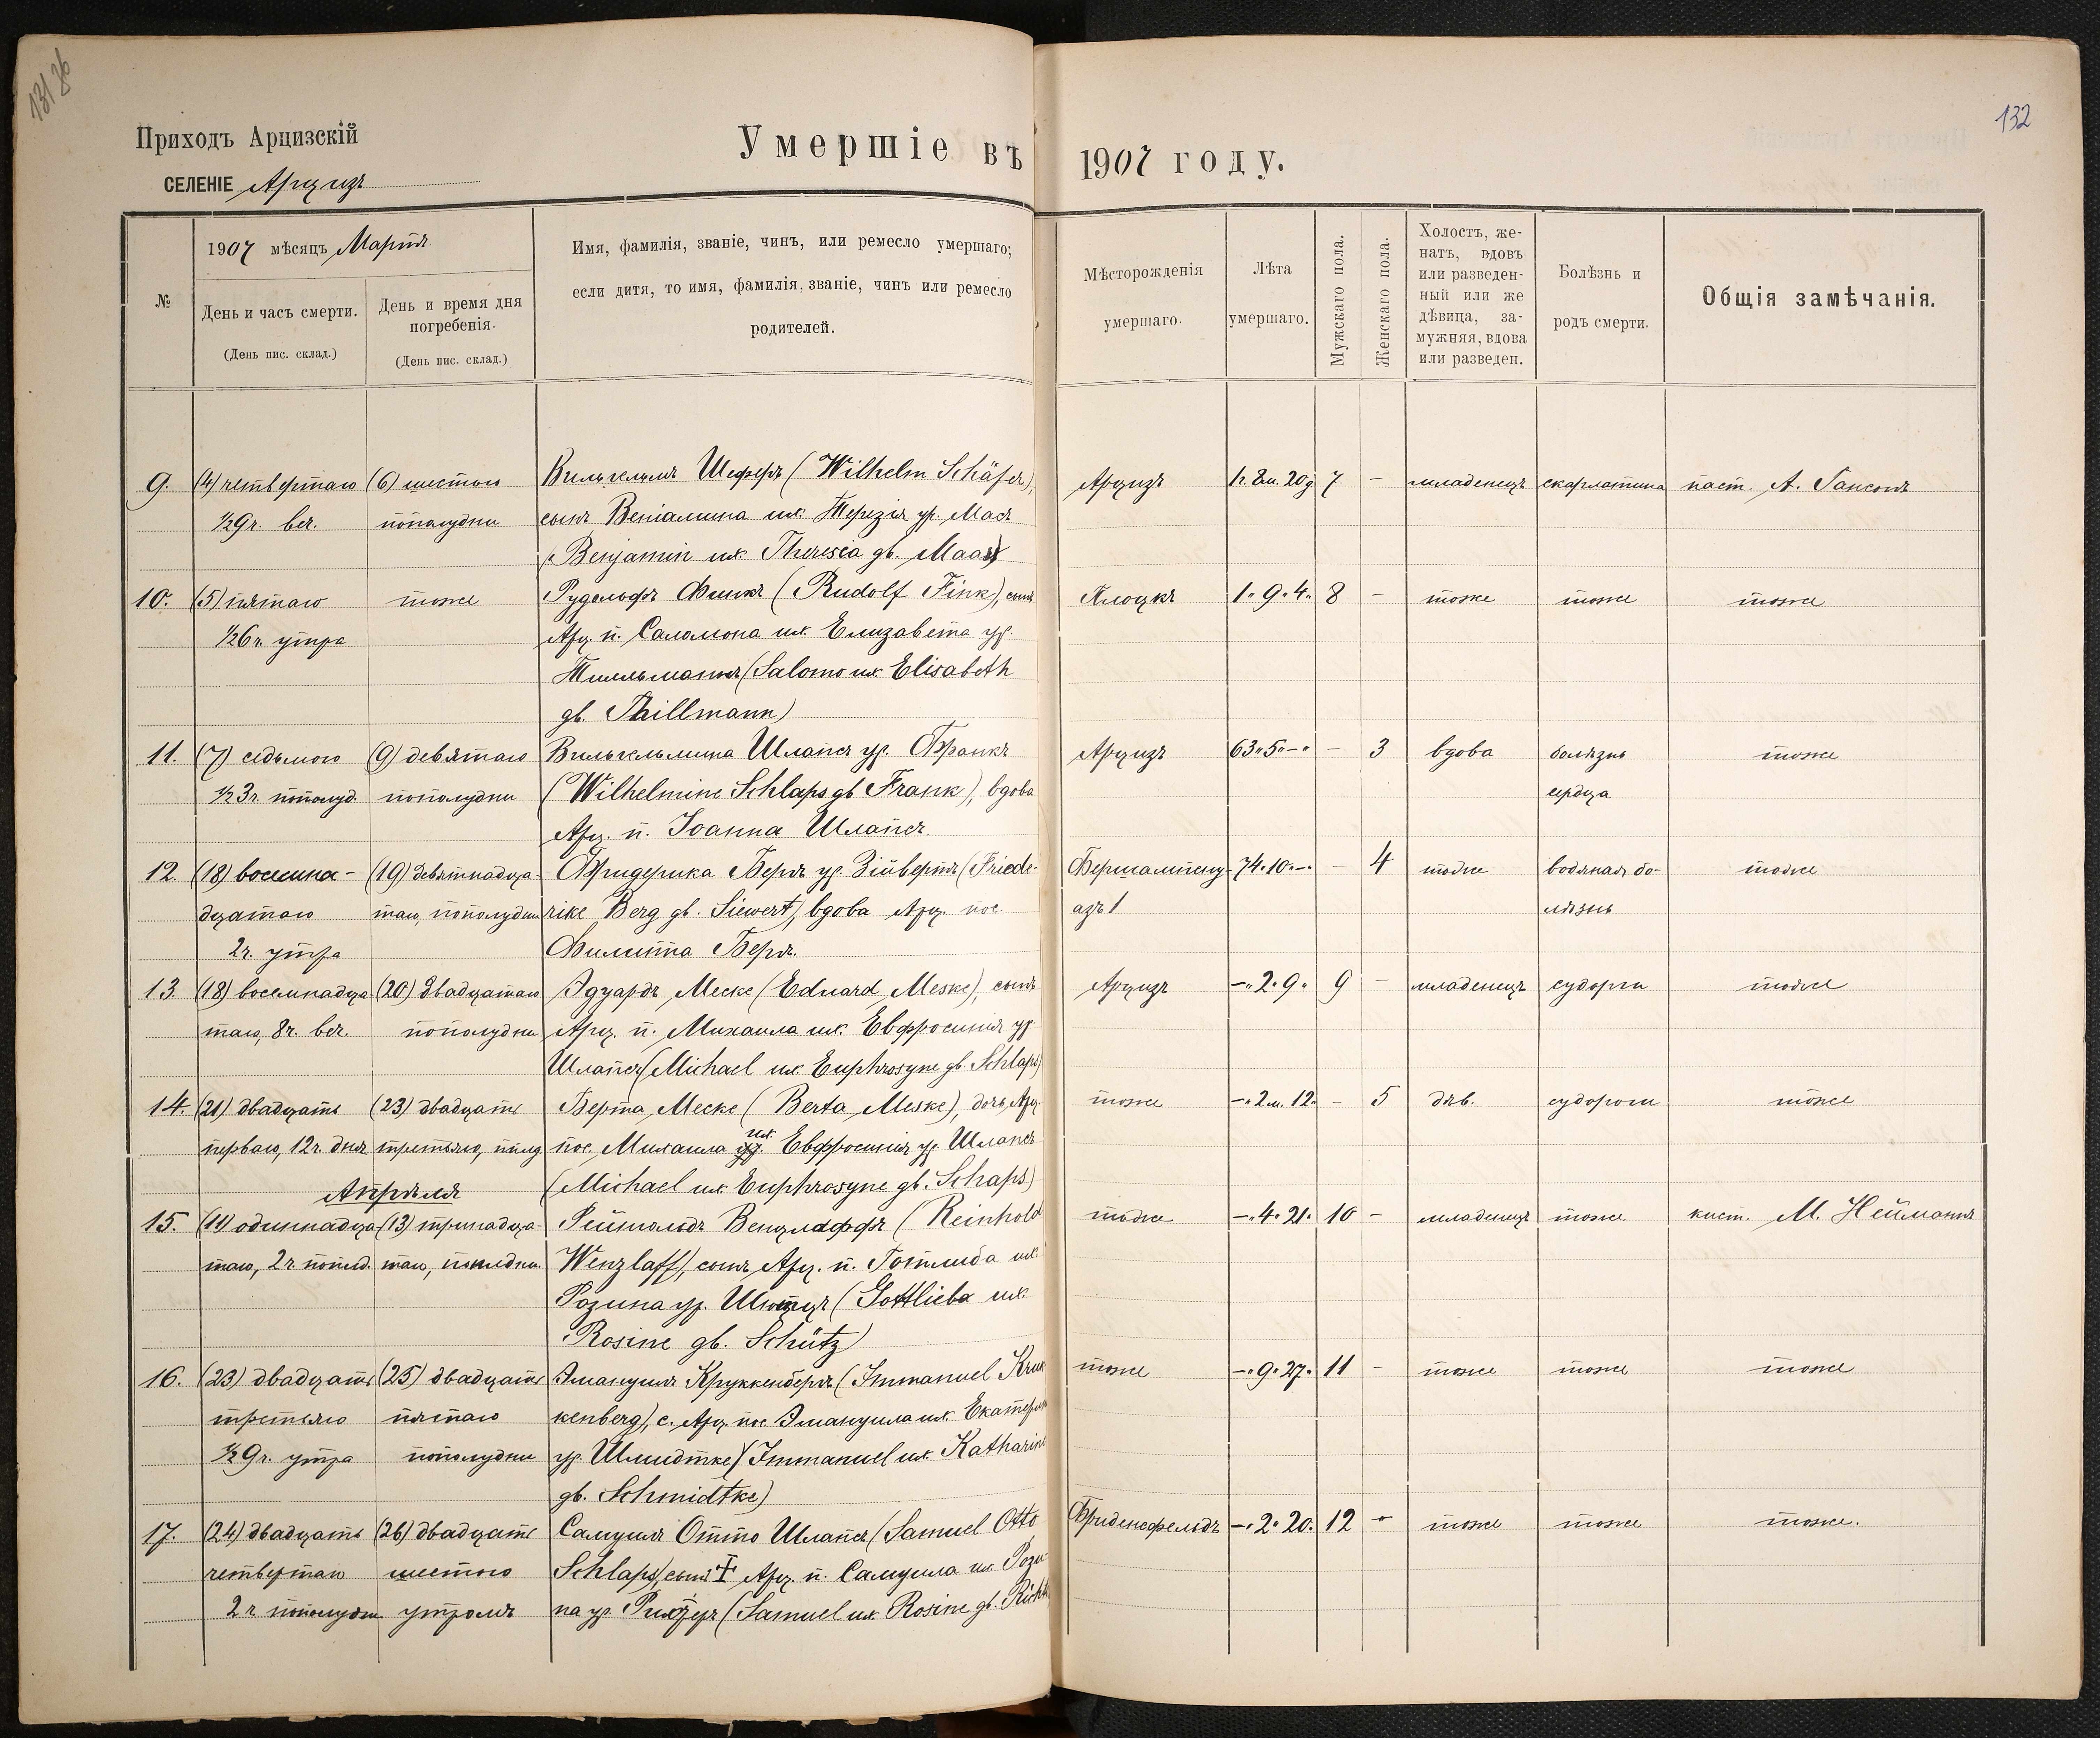 131 26
132
Приходъ Арцизскій
СЕЛЕНІЕ Арцизъ
Умершіе въ 1907 году.
№
1907 мѣсяцъ Мартъ
День и часъ смерти.
(День пис. склад.)
День и время дня
погребенія.
(День пис. склад.)
Имя, фамилія, званіе, чинъ, или ремесло умершаго;
если дитя, то имя, фамилія, званіе, чинъ или ремесло
родителей.
Мѣсторожденія
умершаго.
Лѣта
умершаго.
Мужскаго пола.
Женскаго пола.
Холостъ, же-
натъ, вдовъ
или разведен-
ный или же
дѣвица, за-
мужняя, вдова
или разведен.
Болѣзнь и
родъ смерти.
Общія замѣчанія.
9. (4) четвертаго (6) шестого Вильгельмъ Шеферъ (Wilhelm Schäfer), Арцизъ 1г. 8м. 20д. 7 – младенецъ скарлатина паст. А.
½9ч. веч. пополудни сынъ Веніамина и ж. Терезія ур. Маасъ
(Benjamin и ж. Theresia gb. Maas)
10. (5) пятаго тоже Рудольфъ Финкъ (Rudolf Fink), сынъ Плоцкъ 1 " 9 " 4 " 8 – тоже тоже тоже
½6ч. утра Арц. п. Саломона и ж. Елизавета ур.
Тилльманнъ (Salomo и ж. Elisabeth
gb. Thillmann)
11. (7) седьмого (9) девятаго Вильгельмина Шлапсъ ур. Франкъ Арцизъ 63 " 5 " – " – 3 вдова болѣзнь тоже
½3ч. пополуд. пополудни (Wilhelmine Schlaps gb Frank), вдова сердца
Арц. п. Іоанна Шлапсъ.
12. (18) восемна- (19) девятнадца- Фридерика Бергъ ур. Зійвертъ (Friede- Фершампену- 74 " 10 " – " – 4 тоже водяная бо- тоже
дцатаго таго, пополудни rike Berg gb. Siewert), вдова Арц. пос. азъ 1 лѣзнь
2ч. утра Филиппа Бергъ.
13. (18) восемнадца (20) двадцатаго Эдуардъ Меске (Eduard Meske), сынъ Арцизъ – " 2 " 9 " 9 – младенецъ судорги тоже
таго, 8ч. веч. пополудни Арц. п. Михаила и ж. Евфросинія ур.
Шлапсъ (Michael и ж. Euphrosyne gb. Schlaps)
14. (21) двадцать (23) двадцать Берта Меске (Berta Meske), дочь Арц. тоже – " 2м. 12 " – 5 дѣв. судороги тоже
перваго, 12ч. дня третьяго, полд. пос. Михаила и ж. Евфросинія ур. Шлапсъ
(Michael и ж. Euphrosyne gb. Schaps)
Апрѣля
15. (11) одиннадца- (13) тринадца- Рейнгольдъ Венцлаффъ (Reinhold тоже – " 4 " 21 " 10 – младенецъ тоже кист. М. Нейманнъ
таго, 2ч. попод. таго, пополудни. Wenzlaff), сынъ Арц. п. Готлиба и ж.
Розина ур. Шютцъ (Gottlieba и ж.
Rosine gb. Schütz)
16. (23) двадцать (25) двадцать Эмануилъ Круккенбергъ (Immanuel Kruk тоже – " 9 " 27 " 11 – тоже тоже тоже
третьяго пятаго kenberg), с. Арц. пос. Эмануила и ж. Екатерин
½9ч. утра пополудни ур. Шмидтке (Immanuel и ж. Katharine
gb. Schmidtke)
17. (24) двадцать (26) двадцать Самуилъ Отто Шлапсъ (Samuel Otto Фриденсфельдъ – " 2 " 20 " 12 – тоже тоже тоже.
четвертаго шестого Schlaps), сынъ † Арц. п. Самуила и ж. Рози
2ч пополудни утромъ на ур. Рихтеръ (Samuel и ж. Rosine gb. Richt